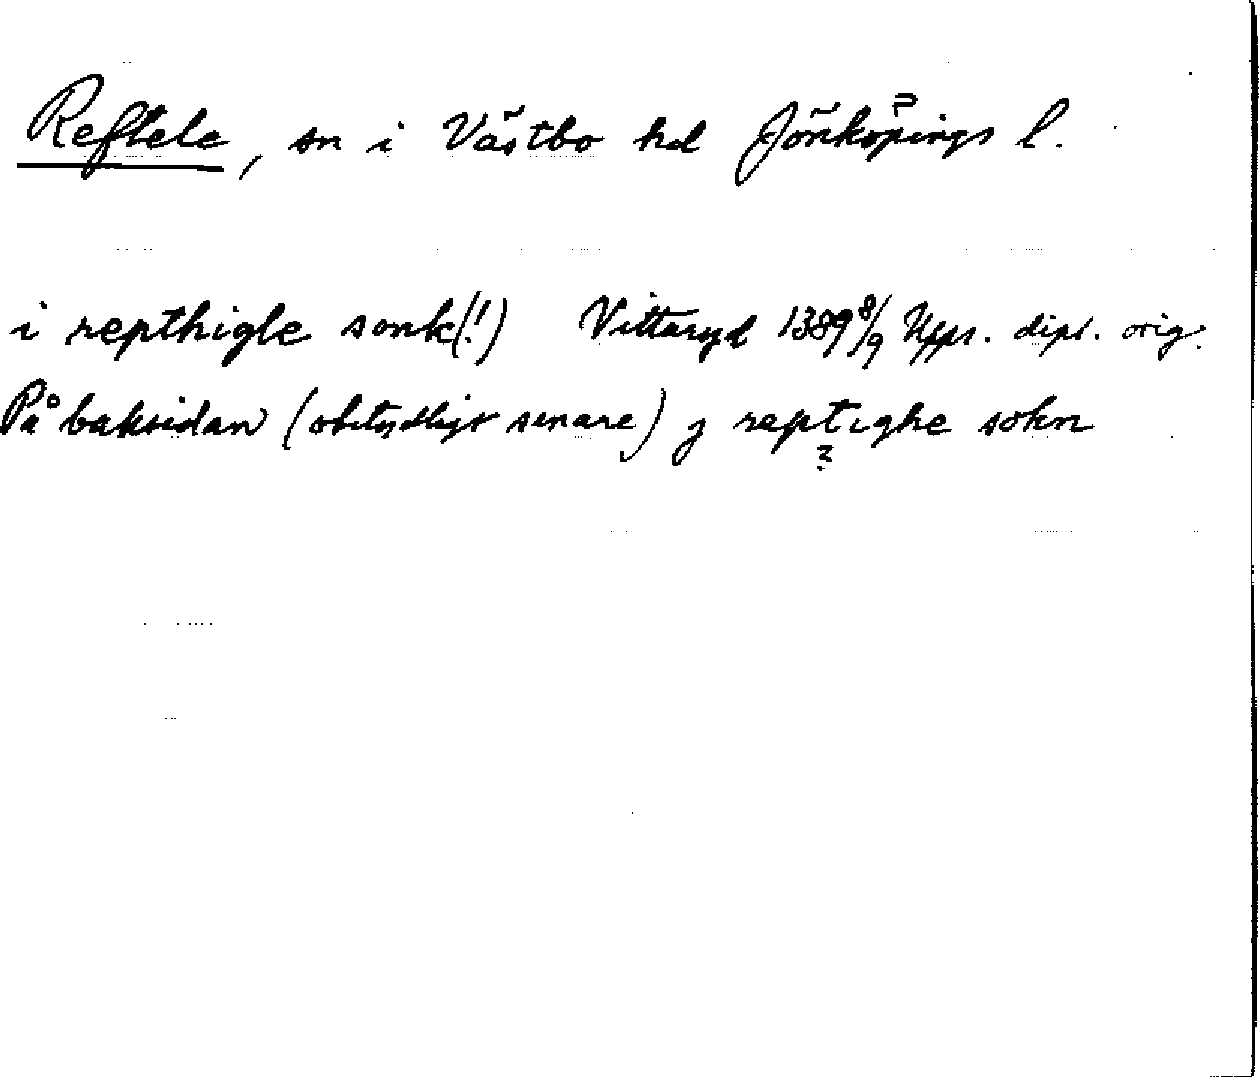 Reftele, sn i Västbo hd Jönköpings l.
i repthigle sonk(!) Vittaryd 1389 8/9 Upps. dipl. orig.
På baksidan (obetydligt senare) j reptighe sokn
?